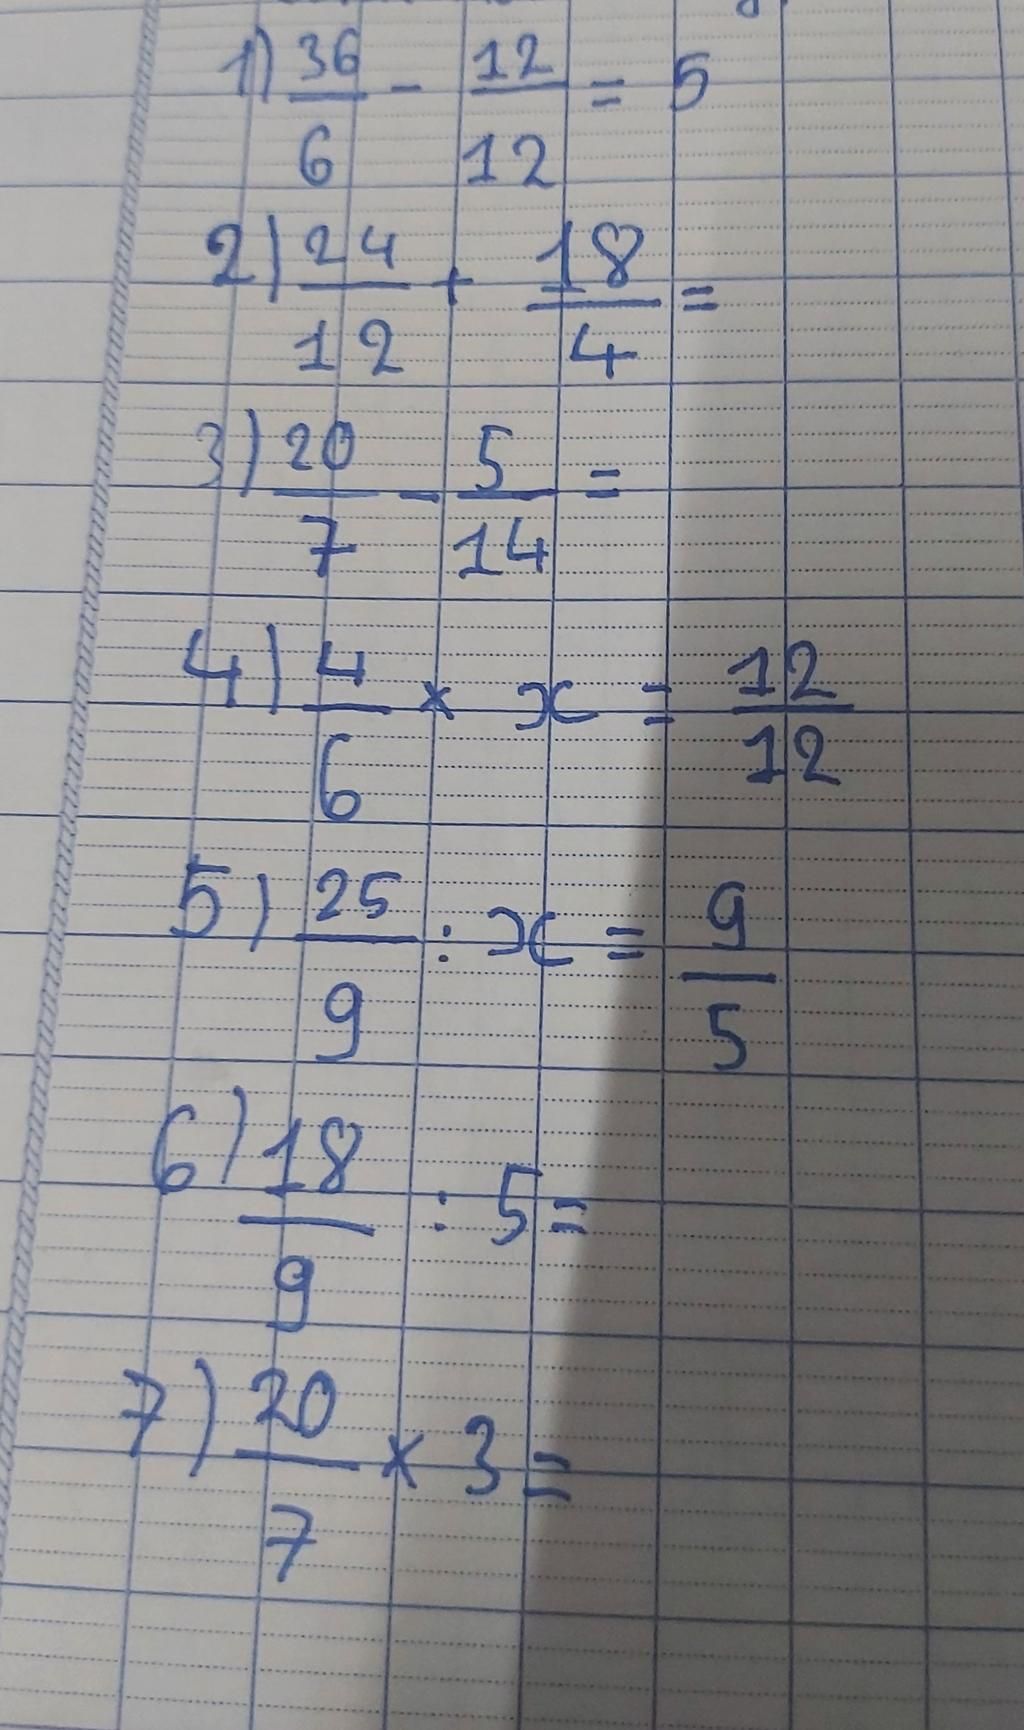 1) 36/6 - 12/12 = 5
2) 24/12 + 18/4 =
3) 20/7 - 5/14 =
4) 4/6 × x = 12/12
5) 25/9 : x = 9/5
6) 18/9 : 5 =
7) 20/7 × 3 =